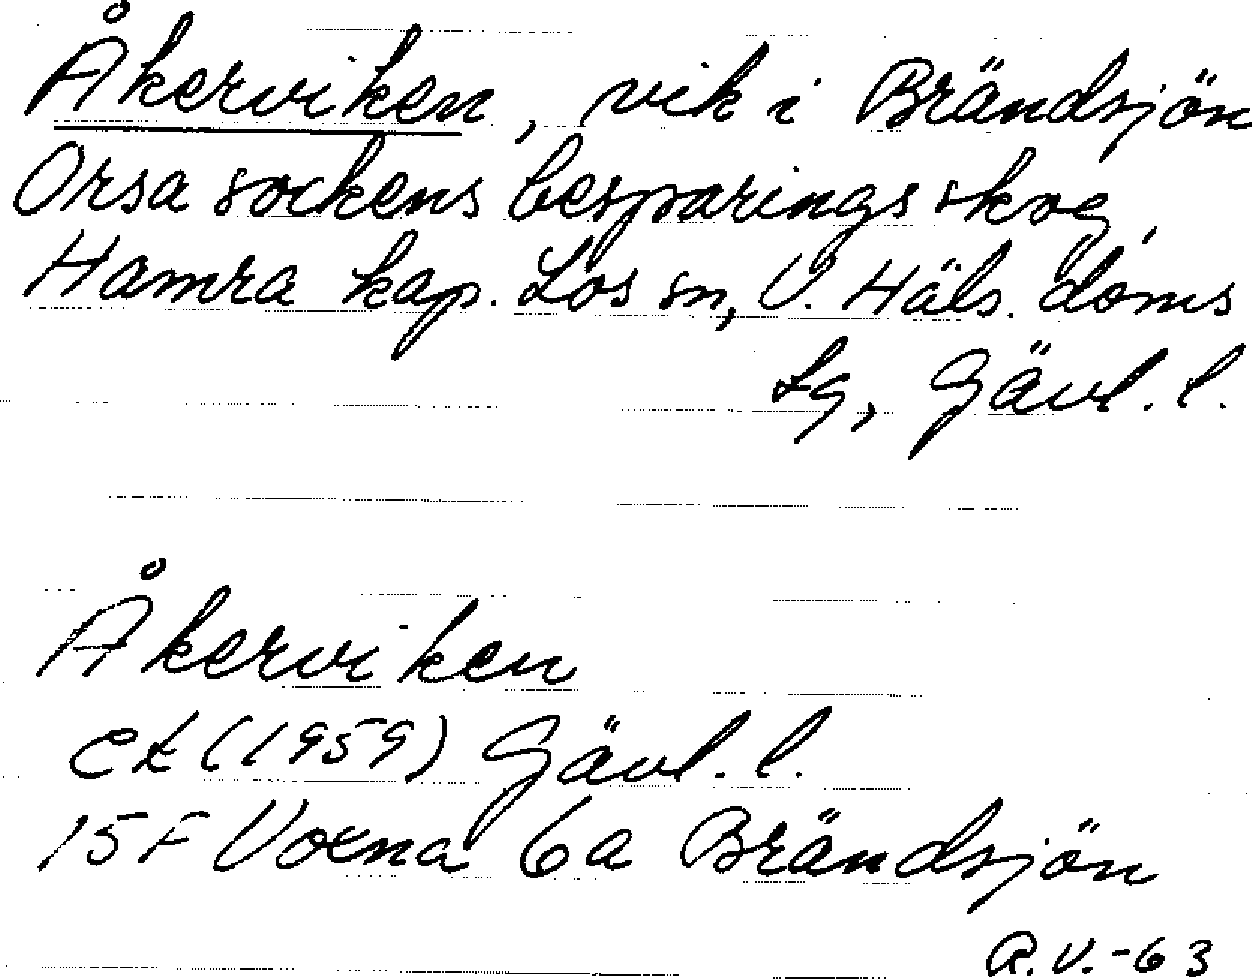 Åkerviken, vik i Brändsjön
Orsa sockens besparingsskog,
Hamra kap. Los sn, V. Häls. doms
lg, Gävl. l.
Åkerviken
ek (1959) Gävl. l.
15F Voxna 6a Brändsjön
R.V.-63